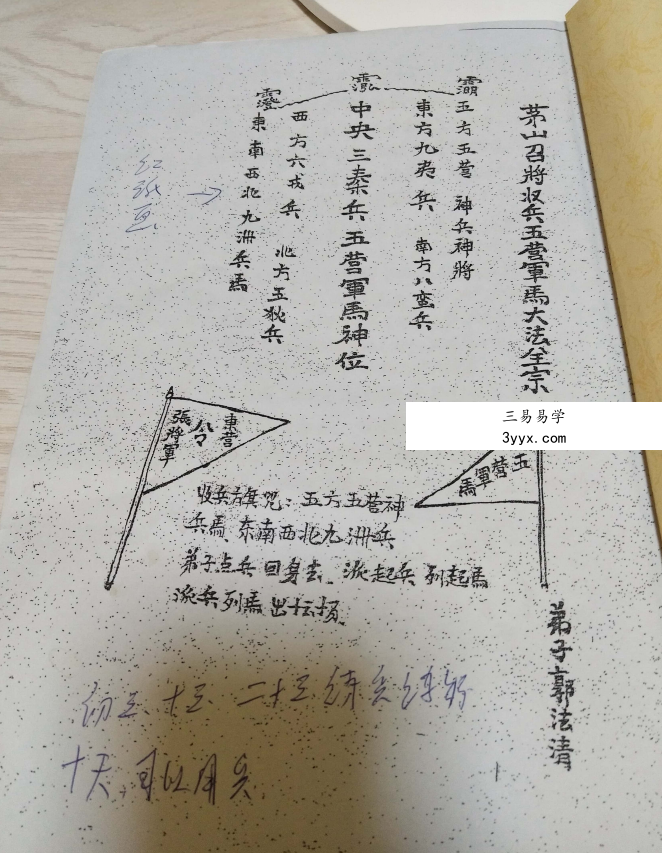 茅山召將收兵五營軍馬大法全宗
五方五营 神兵神將
東方九夷兵 南方八蛮兵
中央三秦兵五营軍馬神位
西方六戎兵 北方五狄兵
東南西北九洲兵馬
红纸画
東营
令
張將軍
三易易学
3yyx.com
五营軍馬
收兵旗咒：五方五营神
兵馬、东南西北九洲兵
弟子点兵回身去、流起兵列起馬
流兵列馬出坛场、
弟子郭法清
初三、十三、二十三练兵
十天，可以用兵.